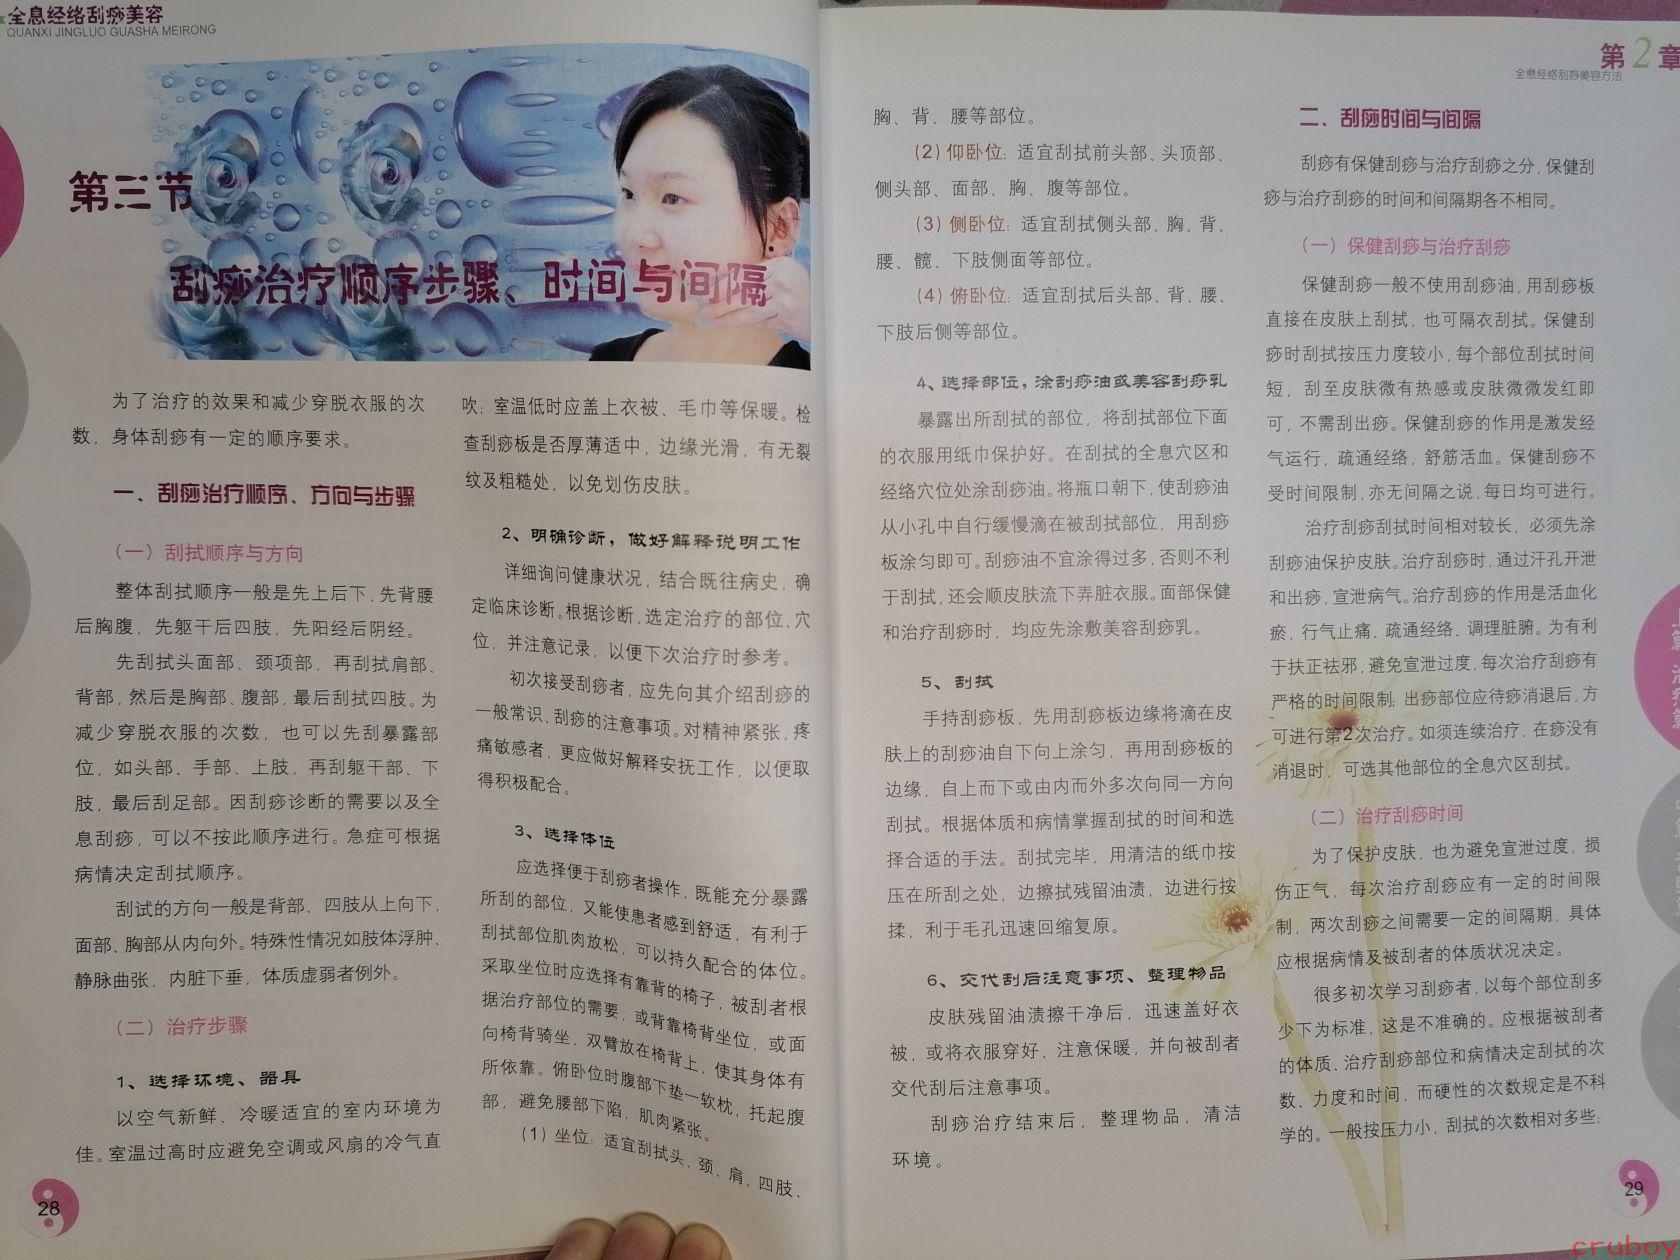 全息经络刮痧美容
QUANXI JINGLUO GUASHA MEIRONG
第三节
刮痧治疗顺序步骤、时间与间隔
为了治疗的效果和减少穿脱衣服的次
数，身体刮痧有一定的顺序要求。
一、刮痧治疗顺序、方向与步骤
（一）刮拭顺序与方向
整体刮拭顺序一般是先上后下，先背腰
后胸腹，先躯干后四肢，先阳经后阴经。
先刮拭头面部、颈项部，再刮拭肩部、
背部，然后是胸部、腹部，最后刮拭四肢。为
减少穿脱衣服的次数，也可以先刮暴露部
位，如头部、手部、上肢，再刮躯干部、下
肢，最后刮足部。因刮痧诊断的需要以及全
息刮痧，可以不按此顺序进行。急症可根据
病情决定刮拭顺序。
刮试的方向一般是背部、四肢从上向下，
面部、胸部从内向外。特殊性情况如肢体浮肿、
静脉曲张，内脏下垂，体质虚弱者例外。
（二）治疗步骤
1、选择环境、器具
以空气新鲜、冷暖适宜的室内环境为
佳。室温过高时应避免空调或风扇的冷气直
28
吹；室温低时应盖上衣被、毛巾等保暖。检
查刮痧板是否厚薄适中，边缘光滑，有无裂
纹及粗糙处，以免划伤皮肤。
2、明确诊断，做好解释说明工作
详细询问健康状况，结合既往病史，确
定临床诊断。根据诊断，选定治疗的部位、穴
位，并注意记录，以便下次治疗时参考。
初次接受刮痧者，应先向其介绍刮痧的
一般常识、刮痧的注意事项。对精神紧张，疼
痛敏感者，更应做好解释安抚工作，以便取
得积极配合。
3、选择体位
应选择便于刮痧者操作，既能充分暴露
所刮的部位，又能使患者感到舒适，有利于
刮拭部位肌肉放松，可以持久配合的体位。
采取坐位时应选择有靠背的椅子，被刮者根
据治疗部位的需要，或背靠椅背坐位，或面
向椅背骑坐，双臂放在椅背上，使其身体有
所依靠。俯卧位时腹部下垫一软枕，托起腹
部，避免腰部下陷，肌肉紧张。
（1）坐位：适宜刮拭头、颈、肩、四肢、
第2章
全息经络刮痧美容方法
胸、背、腰等部位。
（2）仰卧位：适宜刮拭前头部、头顶部、
侧头部、面部、胸、腹等部位。
（3）侧卧位：适宜刮拭侧头部、胸、背、
腰、髋、下肢侧面等部位。
（4）俯卧位：适宜刮拭后头部、背、腰、
下肢后侧等部位。
4、选择部位，涂刮痧油或美容刮痧乳
暴露出所刮拭的部位，将刮拭部位下面
的衣服用纸巾保护好。在刮拭的全息穴区和
经络穴位处涂刮痧油。将瓶口朝下，使刮痧油
从小孔中自行缓慢滴在被刮拭部位，用刮痧
板涂匀即可。刮痧油不宜涂得过多，否则不利
于刮拭，还会顺皮肤流下弄脏衣服。面部保健
和治疗刮痧时，均应先涂敷美容刮痧乳。
5、刮拭
手持刮痧板，先用刮痧板边缘将滴在皮
肤上的刮痧油自下向上涂匀，再用刮痧板的
边缘，自上而下或由内而外多次向同一方向
刮拭。根据体质和病情掌握刮拭的时间和选
择合适的手法。刮拭完毕，用清洁的纸巾按
压在所刮之处，边擦拭残留油渍，边进行按
揉，利于毛孔迅速回缩复原。
6、交代刮后注意事项、整理物品
皮肤残留油渍擦干净后，迅速盖好衣
被，或将衣服穿好，注意保暖，并向被刮者
交代刮后注意事项。
刮痧治疗结束后，整理物品，清洁
环境。
二、刮痧时间与间隔
刮痧有保健刮痧与治疗刮痧之分，保健刮
痧与治疗刮痧的时间和间隔期各不相同。
（一）保健刮痧与治疗刮痧
保健刮痧一般不使用刮痧油，用刮痧板
直接在皮肤上刮拭，也可隔衣刮拭。保健刮
痧时刮拭按压力度较小，每个部位刮拭时间
短，刮至皮肤微有热感或皮肤微微发红即
可，不需刮出痧。保健刮痧的作用是激发经
气运行，疏通经络，舒筋活血。保健刮痧不
受时间限制，亦无间隔之说，每日均可进行。
治疗刮痧刮拭时间相对较长，必须先涂
刮痧油保护皮肤。治疗刮痧时，通过汗孔开泄
和出痧，宣泄病气。治疗刮痧的作用是活血化
瘀，行气止痛、疏通经络、调理脏腑。为有利
于扶正祛邪，避免宣泄过度，每次治疗刮痧有
严格的时间限制；出痧部位应待痧消退后，方
可进行第2次治疗。如须连续治疗，在痧没有
消退时，可选其他部位的全息穴区刮拭。
（二）治疗刮痧时间
为了保护皮肤，也为避免宣泄过度，损
伤正气，每次治疗刮痧应有一定的时间限
制，两次刮痧之间需要一定的间隔期，具体
应根据病情及被刮者的体质状况决定。
很多初次学习刮痧者，以每个部位刮多
少下为标准，这是不准确的。应根据被刮者
的体质、治疗刮痧部位和病情决定刮拭的次
数、力度和时间，而硬性的次数规定是不科
学的。一般按压力小，刮拭的次数相对多些；
29
cruboy